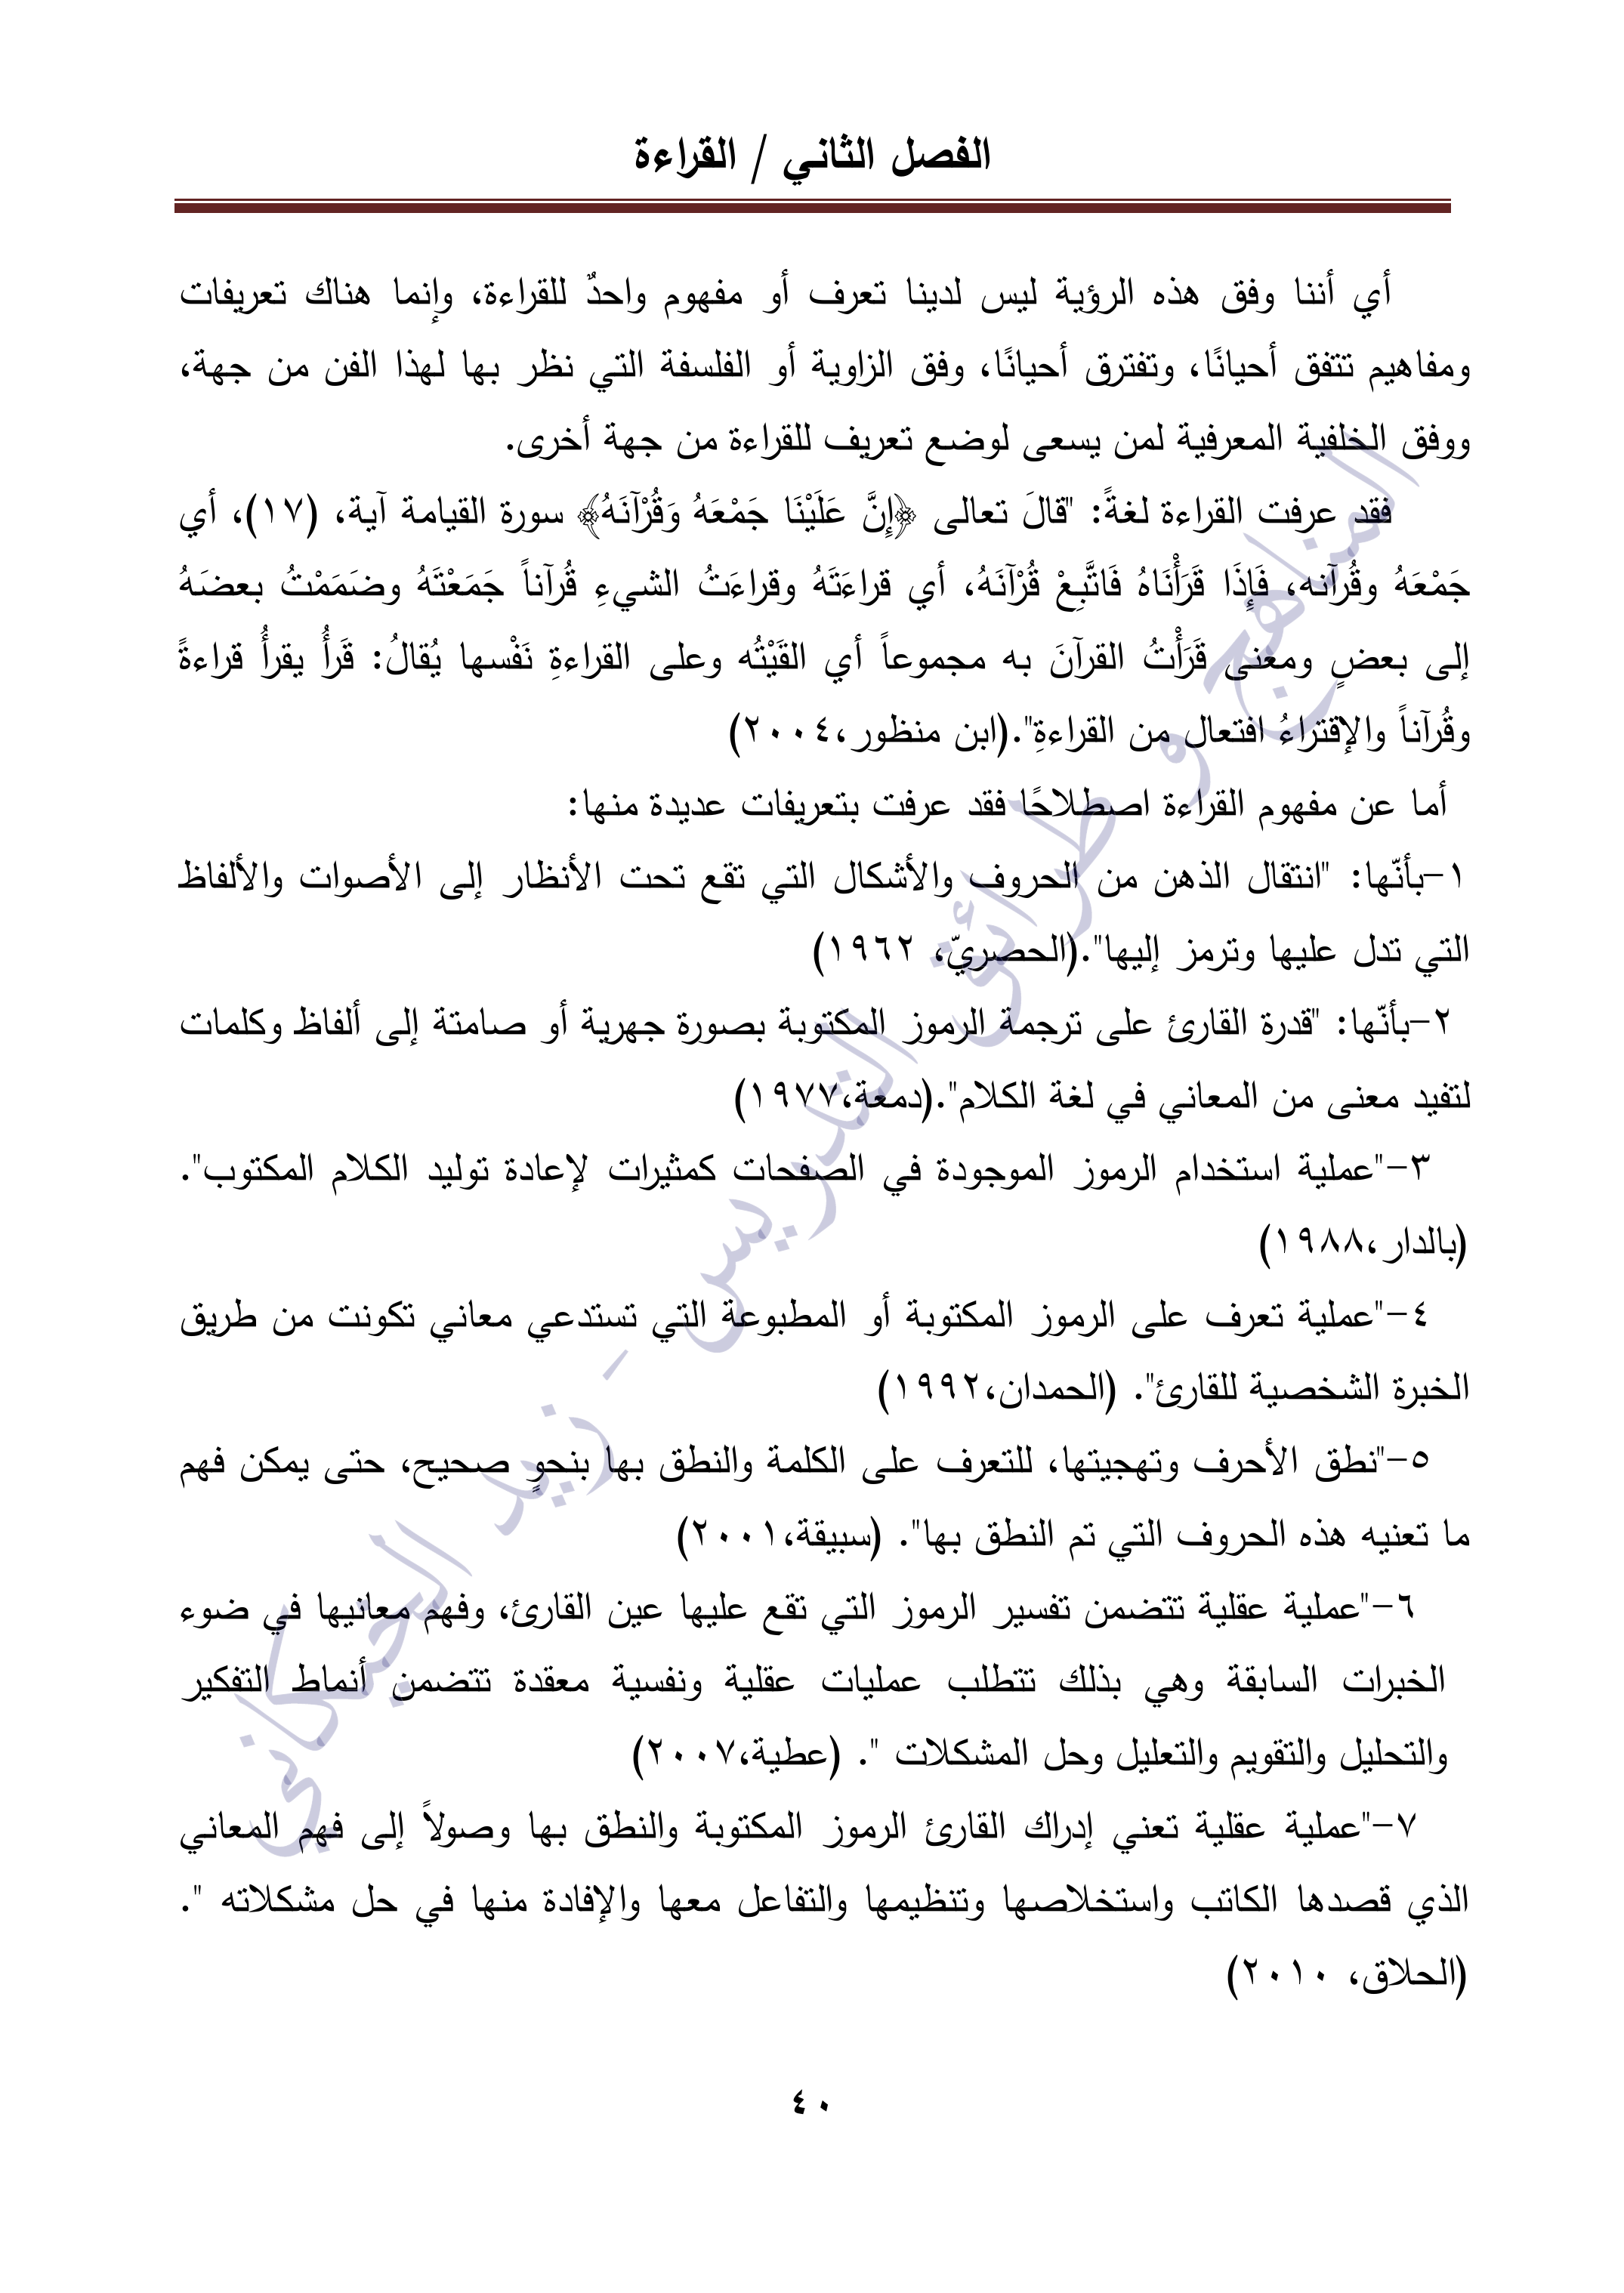 الفصل الثاني / القراءة
أي أننا وفق هذه الرؤية ليس لدينا تعرف أو مفهوم واحدٌ للقراءة، وإنما هناك تعريفات
ومفاهيم تتفق أحيانًا، وتفترق أحيانًا، وفق الزاوية أو الفلسفة التي نظر بها لهذا الفن من جهة،
ووفق الخلفية المعرفية لمن يسعى لوضع تعريف للقراءة من جهة أخرى.
فقد عرفت القراءة لغةً: "قالَ تعالى ﴿إِنَّ عَلَيْنَا جَمْعَهُ وَقُرْآنَهُ﴾ سورة القيامة آية، (١٧)، أي
جَمْعَهُ وقُرآنه، فَإِذَا قَرَأْنَاهُ فَاتَّبِعْ قُرْآنَهُ، أي قراءَتَهُ وقراءَتُ الشيءِ قُرآناً جَمَعْتَهُ وضَمَمْتُ بعضَهُ
إلى بعضٍ ومعنى قَرَأْتُ القرآنَ به مجموعاً أي القَيْتُه وعلى القراءةِ نَفْسها يُقالُ: قَرأُ يقرأُ قراءةً
وقُرآناً والإقتراءُ افتعال من القراءةِ".(ابن منظور،٢٠٠٤)
أما عن مفهوم القراءة اصطلاحًا فقد عرفت بتعريفات عديدة منها:
١-بأنّها: "انتقال الذهن من الحروف والأشكال التي تقع تحت الأنظار إلى الأصوات والألفاظ
التي تدل عليها وترمز إليها".(الحصريّ، ١٩٦٢)
٢-بأنّها: "قدرة القارئ على ترجمة الرموز المكتوبة بصورة جهرية أو صامتة إلى ألفاظ وكلمات
لتفيد معنى من المعاني في لغة الكلام".(دمعة،١٩٧٧)
٣-"عملية استخدام الرموز الموجودة في الصفحات كمثيرات لإعادة توليد الكلام المكتوب".
(بالدار،١٩٨٨)
٤-"عملية تعرف على الرموز المكتوبة أو المطبوعة التي تستدعي معاني تكونت من طريق
الخبرة الشخصية للقارئ". (الحمدان،١٩٩٢)
٥-"نطق الأحرف وتهجيتها، للتعرف على الكلمة والنطق بها بنحوٍ صحيح، حتى يمكن فهم
ما تعنيه هذه الحروف التي تم النطق بها". (سبيقة،٢٠٠١)
٦-"عملية عقلية تتضمن تفسير الرموز التي تقع عليها عين القارئ، وفهم معانيها في ضوء
الخبرات السابقة وهي بذلك تتطلب عمليات عقلية ونفسية معقدة تتضمن أنماط التفكير
والتحليل والتقويم والتعليل وحل المشكلات ". (عطية،٢٠٠٧)
٧-"عملية عقلية تعني إدراك القارئ الرموز المكتوبة والنطق بها وصولاً إلى فهم المعاني
الذي قصدها الكاتب واستخلاصها وتنظيمها والتفاعل معها والإفادة منها في حل مشكلاته ".
(الحلاق، ٢٠١٠)
٤٠
المناهج و طرائق التدريس - زيد الجيكاني